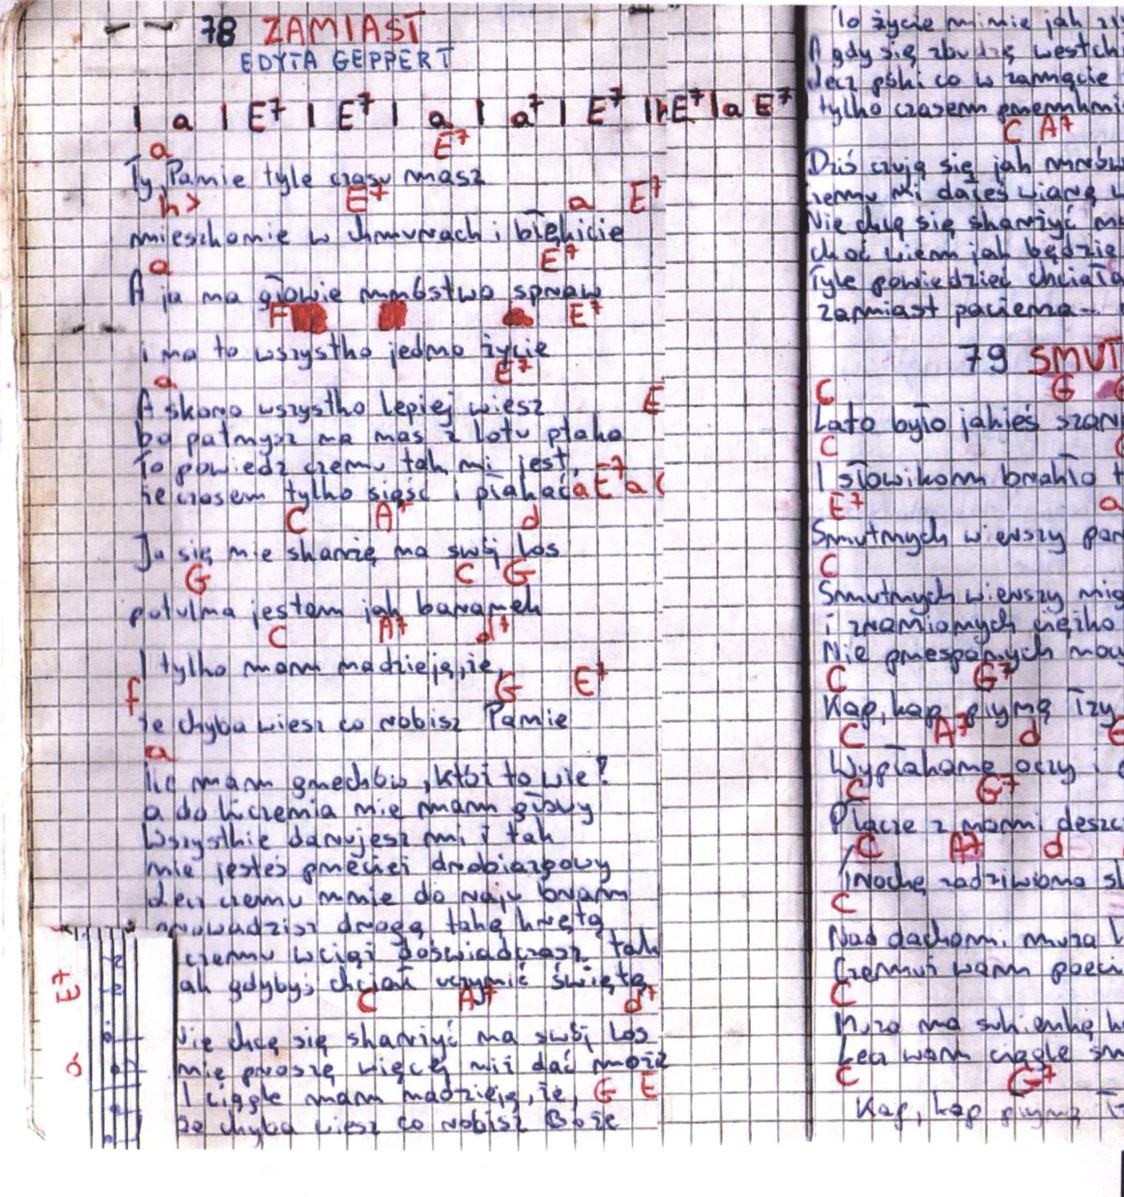 78 ZAMIAST
EDYTA GEPPERT
| a | E7 | E7 | a | a7 | E7 | h E7 | a E7
a E7
Ty, Panie tyle czasu masz
h> E7 a E7
mieszkanie w chmurach i błękicie
a E7
A ja na głowie mnóstwo spraw
F E7
i na to wszystko jedno życie
a E7
A skoro wszystko lepiej wiesz E
bo patrzysz na nas z lotu ptaka
To powiedz czemu tak mi jest,
że czasem tylko siąść i płakać a E7 a (
C A7 d
Ja się nie skarżę na swój los
G C G
potulna jestem jak baranek
C A7 d7
I tylko mam nadzieję, że,
f G E7
że chyba wiesz co robisz Panie
a
Ile mam grzechów, któż to wie?
a do liczenia nie mam głowy
Wszystkie darujesz mi i tak
nie jesteś przecież drobiazgowy
Lecz czemu mnie do raju bram
prowadzisz drogą taką krętą
czemu wciąż doświadczasz tak
ak gdybyś chciał uczynić świętą
C A7 d7
Nie chcę się skarżyć na swój los
nie proszę więcej niż dać może
I ciągle mam nadzieję, że, G E
że chyba wiesz co robisz Boże
E7
a
To życie minie jak
A gdy się zbudzę westch
Lecz póki co w zamęcie
tylko czasem
C A7
Dziś czuję się jak mrów
czemu mi dałeś wiarę
Nie chcę się skarżyć
choć wiem jak będzie
Tyle powiedzieć chciała
zamiast pacierza
79 SMUT
C G
Lato było jakieś szar
C
I słowikom brakło t
E7 a
Smutnych wierszy
C
Smutnych wierszy
i znajomych ciężko
Nie przespanych
C G7
Kap, kap płyną łzy
C A7 d
Wypłakane oczy i
C G7
Płacze z nami deszc
C A7 d
Troche zadziwiona
C
Nad dachami muza
Czemuż wam poeci
C
Muza ma sukienkę
Lecz wam ciągle
C G7
Kap, kap płyną